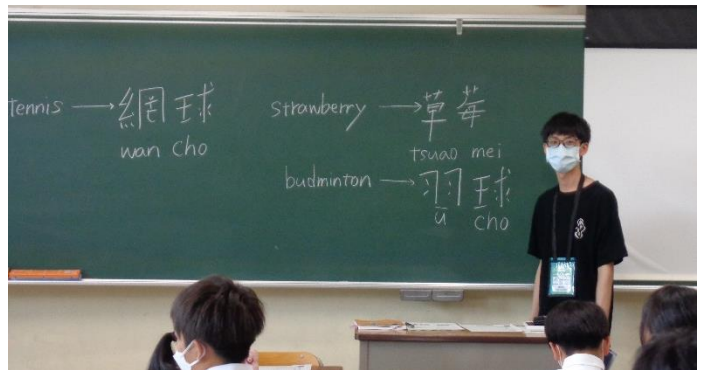 tennis → 網球
wan cho
strawberry → 草莓
tsuao mei
budminton → 羽球
ū cho